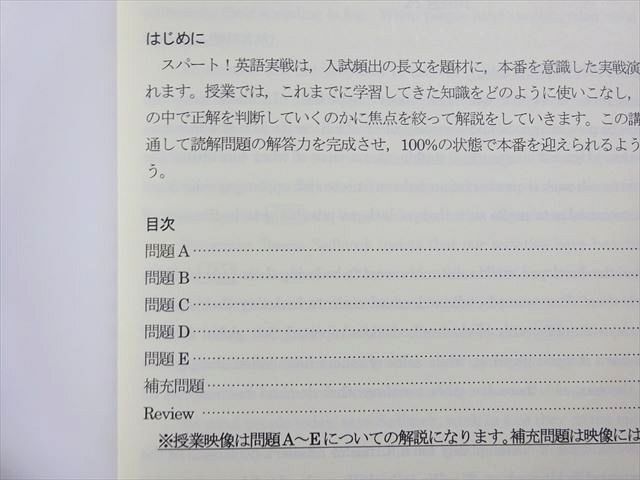 はじめに
スパート！英語実戦は，入試頻出の長文を題材に，本番を意識した実戦演
れます。授業では，これまでに学習してきた知識をどのように使いこなし，
の中で正解を判断していくのかに焦点を絞って解説をしていきます。この講
通して読解問題の解答力を完成させ，100%の状態で本番を迎えられるよう
う。
目次
問題 A
問題 B
問題 C
問題 D
問題 E
補充問題
Review
※授業映像は問題 A～E についての解説になります。補充問題は映像には